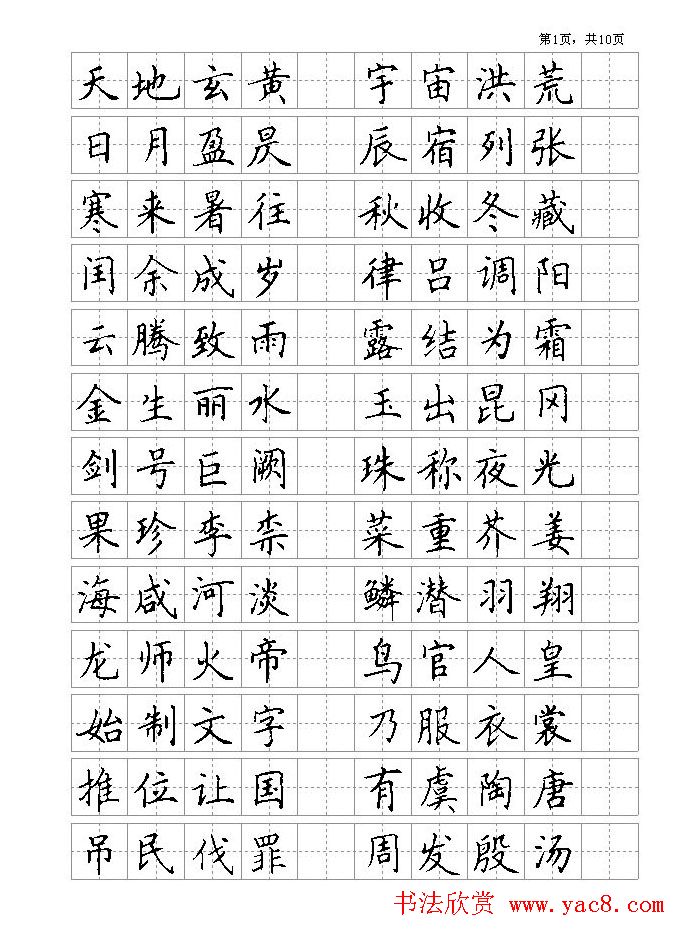 第1页，共10页
天地玄黄 宇宙洪荒
日月盈昃 辰宿列张
寒来暑往 秋收冬藏
闰余成岁 律吕调阳
云腾致雨 露结为霜
金生丽水 玉出昆冈
剑号巨阙 珠称夜光
果珍李柰 菜重芥姜
海咸河淡 鳞潜羽翔
龙师火帝 鸟官人皇
始制文字 乃服衣裳
推位让国 有虞陶唐
吊民伐罪 周发殷汤
书法欣赏 www.yac8.com